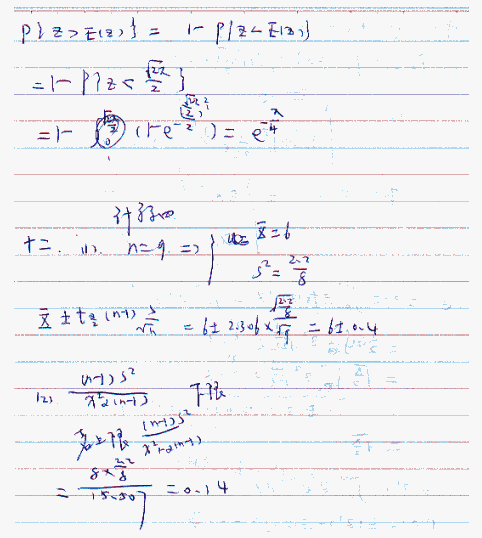 P{Z>E(Z)} = 1-P{Z<E(Z)}
=1-P{Z<\frac{\sqrt{2\pi}}{2}}
=1-(1-e^{-\frac{(\frac{\sqrt{2\pi}}{2})^2}{2}})=e^{-\frac{\pi}{4}}
十二. (1). n=9 => { \bar{x}=6
s^2=\frac{2.2}{8}
\bar{x} ± t_{\frac{α}{2}}(n-1)\frac{s}{\sqrt{n}} = 6±2.306×\frac{\sqrt{\frac{2.2}{8}}}{\sqrt{9}} = 6±0.4
(2) \frac{(n-1)s^2}{χ^2_α(n-1)} 下限
上限 \frac{(n-1)s^2}{χ^2_{1-α}(n-1)}
=\frac{8×\frac{2.2}{8}}{15.507}=0.14